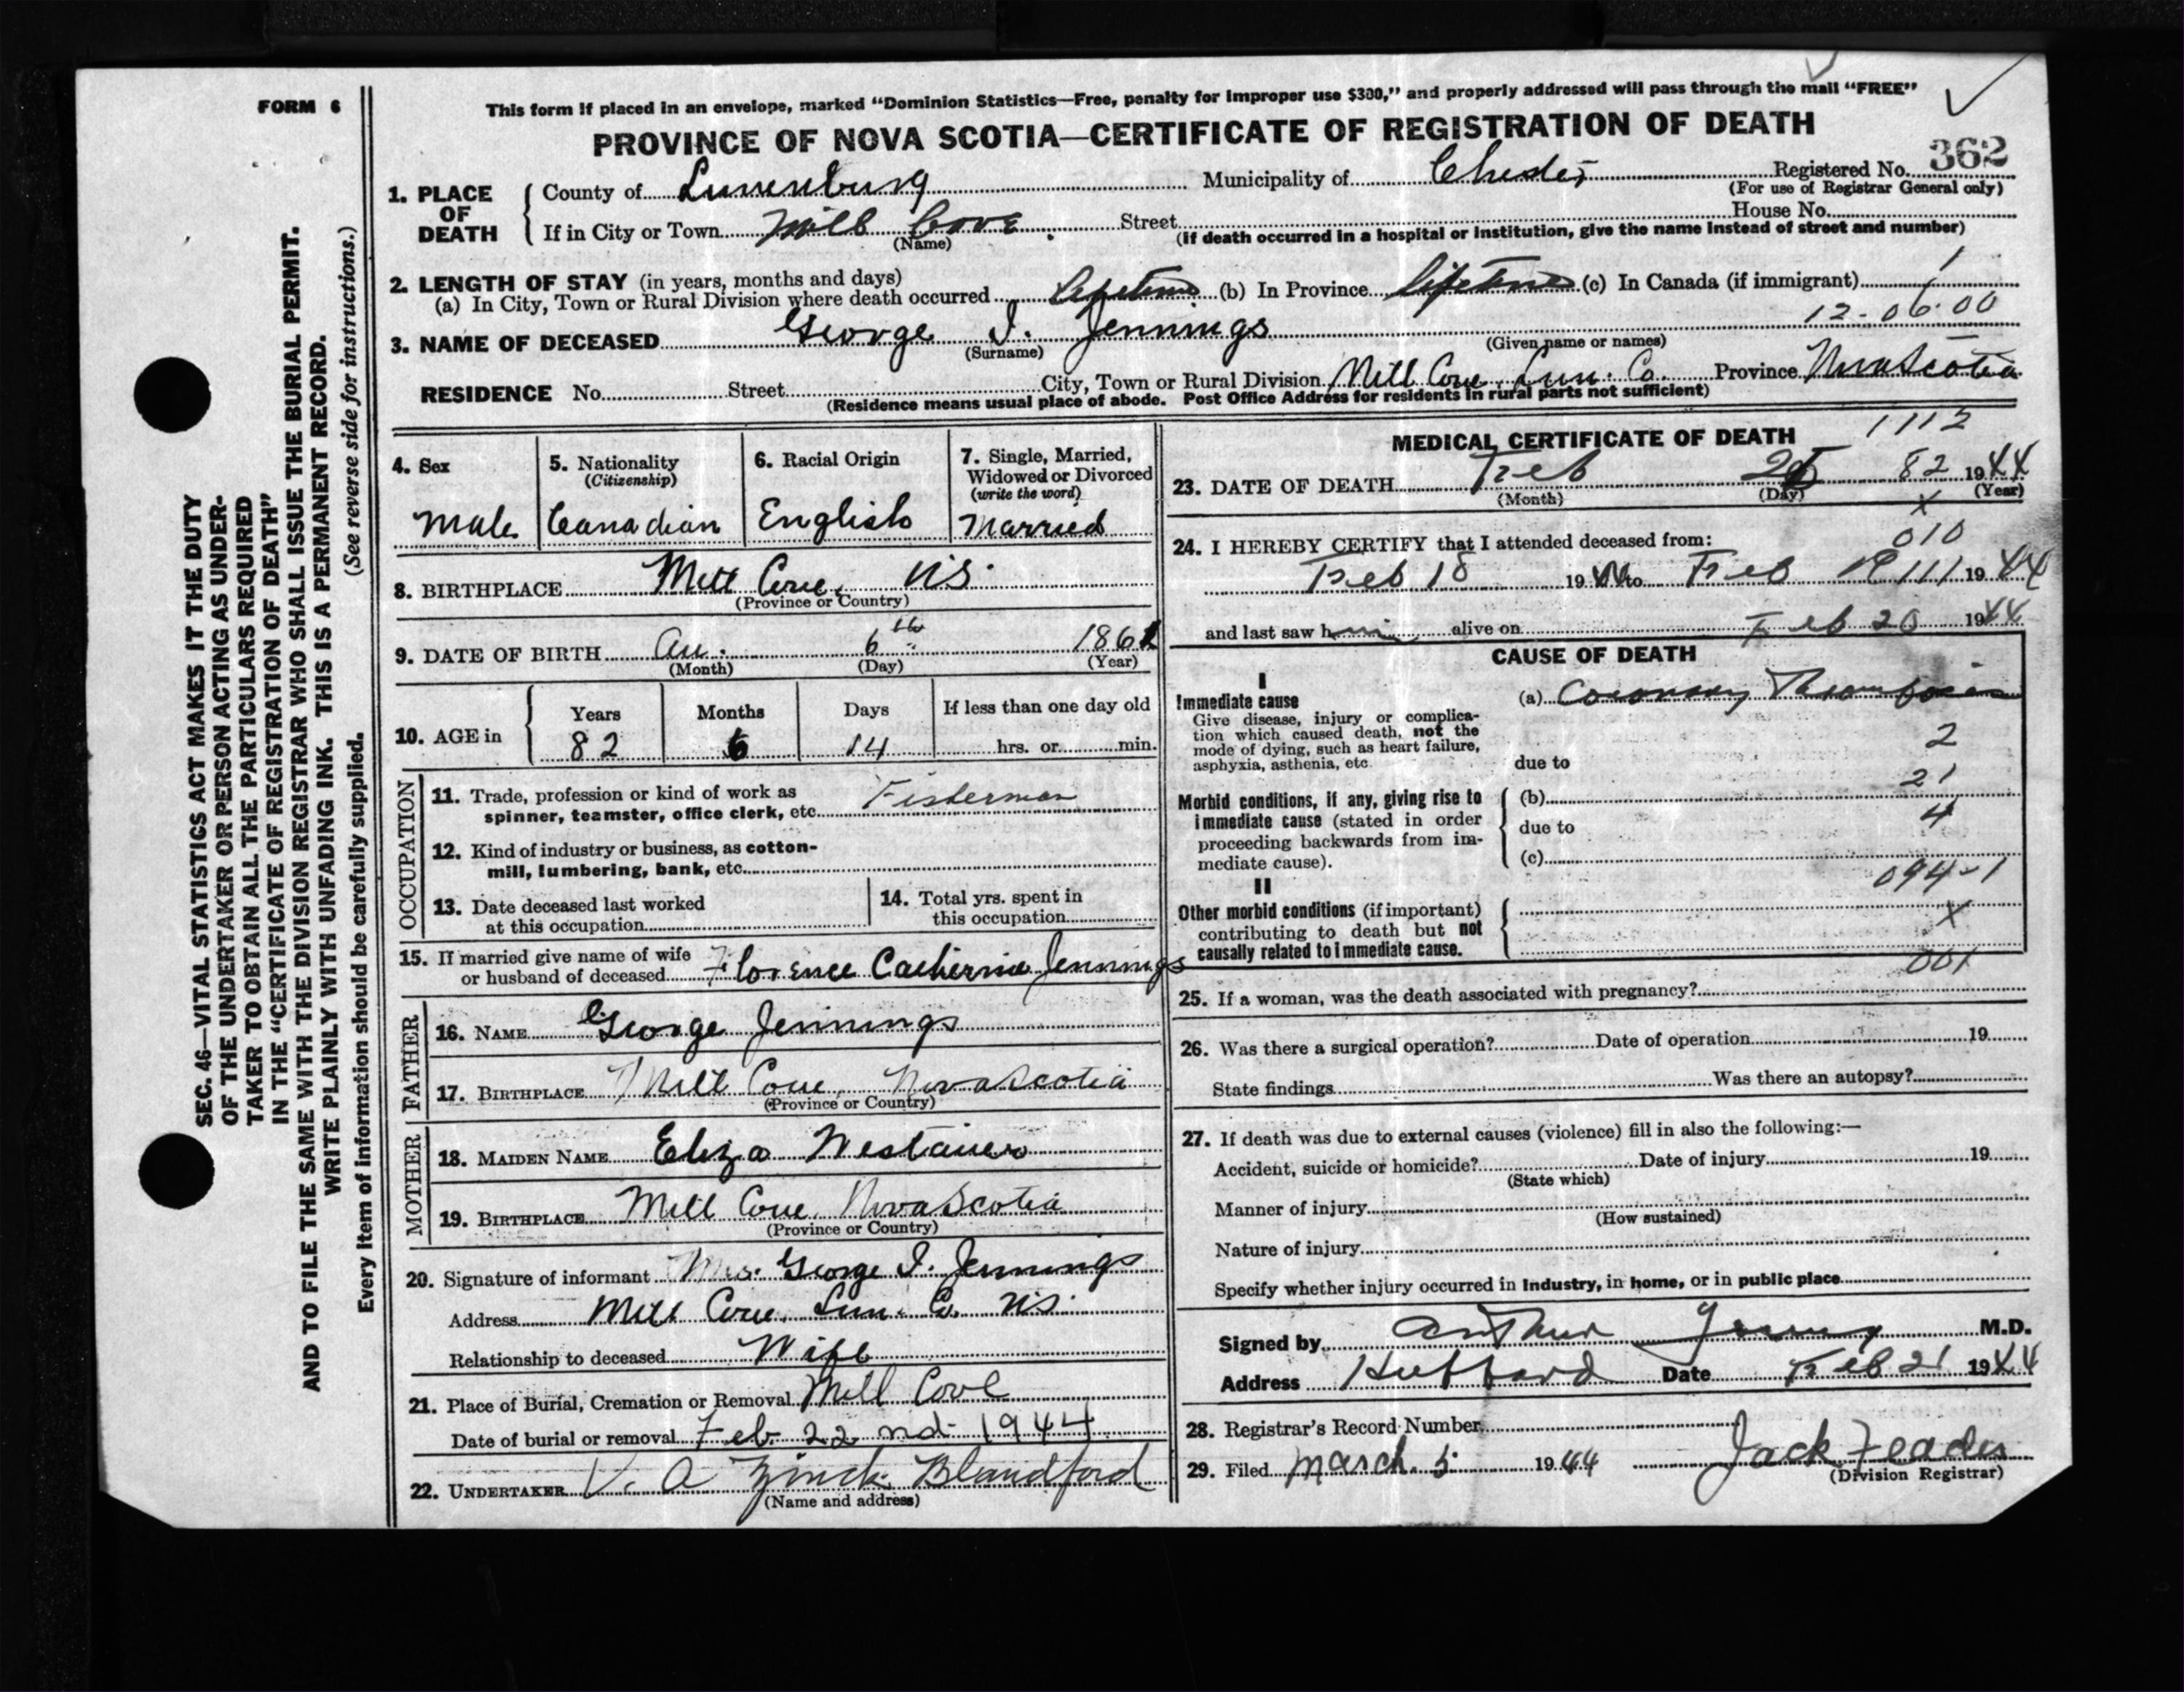 FORM 6
This form if placed in an envelope, marked "Dominion Statistics—Free, penalty for improper use $300," and properly addressed will pass through the mail "FREE"
PROVINCE OF NOVA SCOTIA—CERTIFICATE OF REGISTRATION OF DEATH
SEC. 46—VITAL STATISTICS ACT MAKES IT THE DUTY
OF THE UNDERTAKER OR PERSON ACTING AS UNDER-
TAKER TO OBTAIN ALL THE PARTICULARS REQUIRED
IN THE "CERTIFICATE OF REGISTRATION OF DEATH"
AND TO FILE THE SAME WITH THE DIVISION REGISTRAR WHO SHALL ISSUE THE BURIAL PERMIT.
WRITE PLAINLY WITH UNFADING INK. THIS IS A PERMANENT RECORD.
Every item of information should be carefully supplied. (See reverse side for instructions.)
1. PLACE OF DEATH
County of Lunenburg Municipality of Chester Registered No. 362
(For use of Registrar General only)
If in City or Town Mill Cove. Street House No.
(Name) (If death occurred in a hospital or institution, give the name instead of street and number)
2. LENGTH OF STAY (in years, months and days)
(a) In City, Town or Rural Division where death occurred lifetime (b) In Province lifetime (c) In Canada (if immigrant)
12-06-00
3. NAME OF DECEASED George I. Jennings
(Surname) (Given name or names)
RESIDENCE No. Street City, Town or Rural Division Mill Cove, Lun. Co. Province Nova Scotia
(Residence means usual place of abode. Post Office Address for residents in rural parts not sufficient)
4. Sex
Male
5. Nationality
(Citizenship)
Canadian
6. Racial Origin
English
7. Single, Married,
Widowed or Divorced
(write the word)
Married
8. BIRTHPLACE Mill Cove, N.S.
(Province or Country)
9. DATE OF BIRTH Au. 6th 1861
(Month) (Day) (Year)
10. AGE in
Years Months Days If less than one day old
82 6 14 hrs. or min.
OCCUPATION
11. Trade, profession or kind of work as
spinner, teamster, office clerk, etc. Fisherman
12. Kind of industry or business, as cotton-
mill, lumbering, bank, etc.
13. Date deceased last worked
at this occupation
14. Total yrs. spent in
this occupation
15. If married give name of wife
or husband of deceased Florence Catherine Jennings
FATHER
16. NAME George Jennings
17. BIRTHPLACE Mill Cove, Nova Scotia
(Province or Country)
MOTHER
18. MAIDEN NAME Eliza Westaver
19. BIRTHPLACE Mill Cove, Nova Scotia
(Province or Country)
20. Signature of informant Mrs. George I. Jennings
Address Mill Cove, Lun. Co. N.S.
Relationship to deceased Wife
21. Place of Burial, Cremation or Removal Mill Cove
Date of burial or removal Feb. 22nd 1944
22. UNDERTAKER V. A Zinck Blandford
(Name and address)
MEDICAL CERTIFICATE OF DEATH 1112
23. DATE OF DEATH Feb 82 1944
(Month) (Day) (Year)
X
24. I HEREBY CERTIFY that I attended deceased from: 010
Feb 18 1944 to Feb 111 1944
and last saw him alive on Feb 20 1944
CAUSE OF DEATH
I
Immediate cause
Give disease, injury or complica-
tion which caused death, not the
mode of dying, such as heart failure,
asphyxia, asthenia, etc.
(a) Coronary Thrombosis
2
due to
21
Morbid conditions, if any, giving rise to
immediate cause (stated in order
proceeding backwards from im-
mediate cause).
(b)
4
due to
(c)
094-1
II
Other morbid conditions (if important)
contributing to death but not
causally related to immediate cause.
X
001
25. If a woman, was the death associated with pregnancy?
26. Was there a surgical operation? Date of operation 19
State findings Was there an autopsy?
27. If death was due to external causes (violence) fill in also the following:—
Accident, suicide or homicide? Date of injury 19
(State which)
Manner of injury
(How sustained)
Nature of injury
Specify whether injury occurred in industry, in home, or in public place
Signed by Arthur Young M.D.
Address Hubbard Date Feb 21 1944
28. Registrar's Record Number
29. Filed March 5 1944 Jack Feader
(Division Registrar)